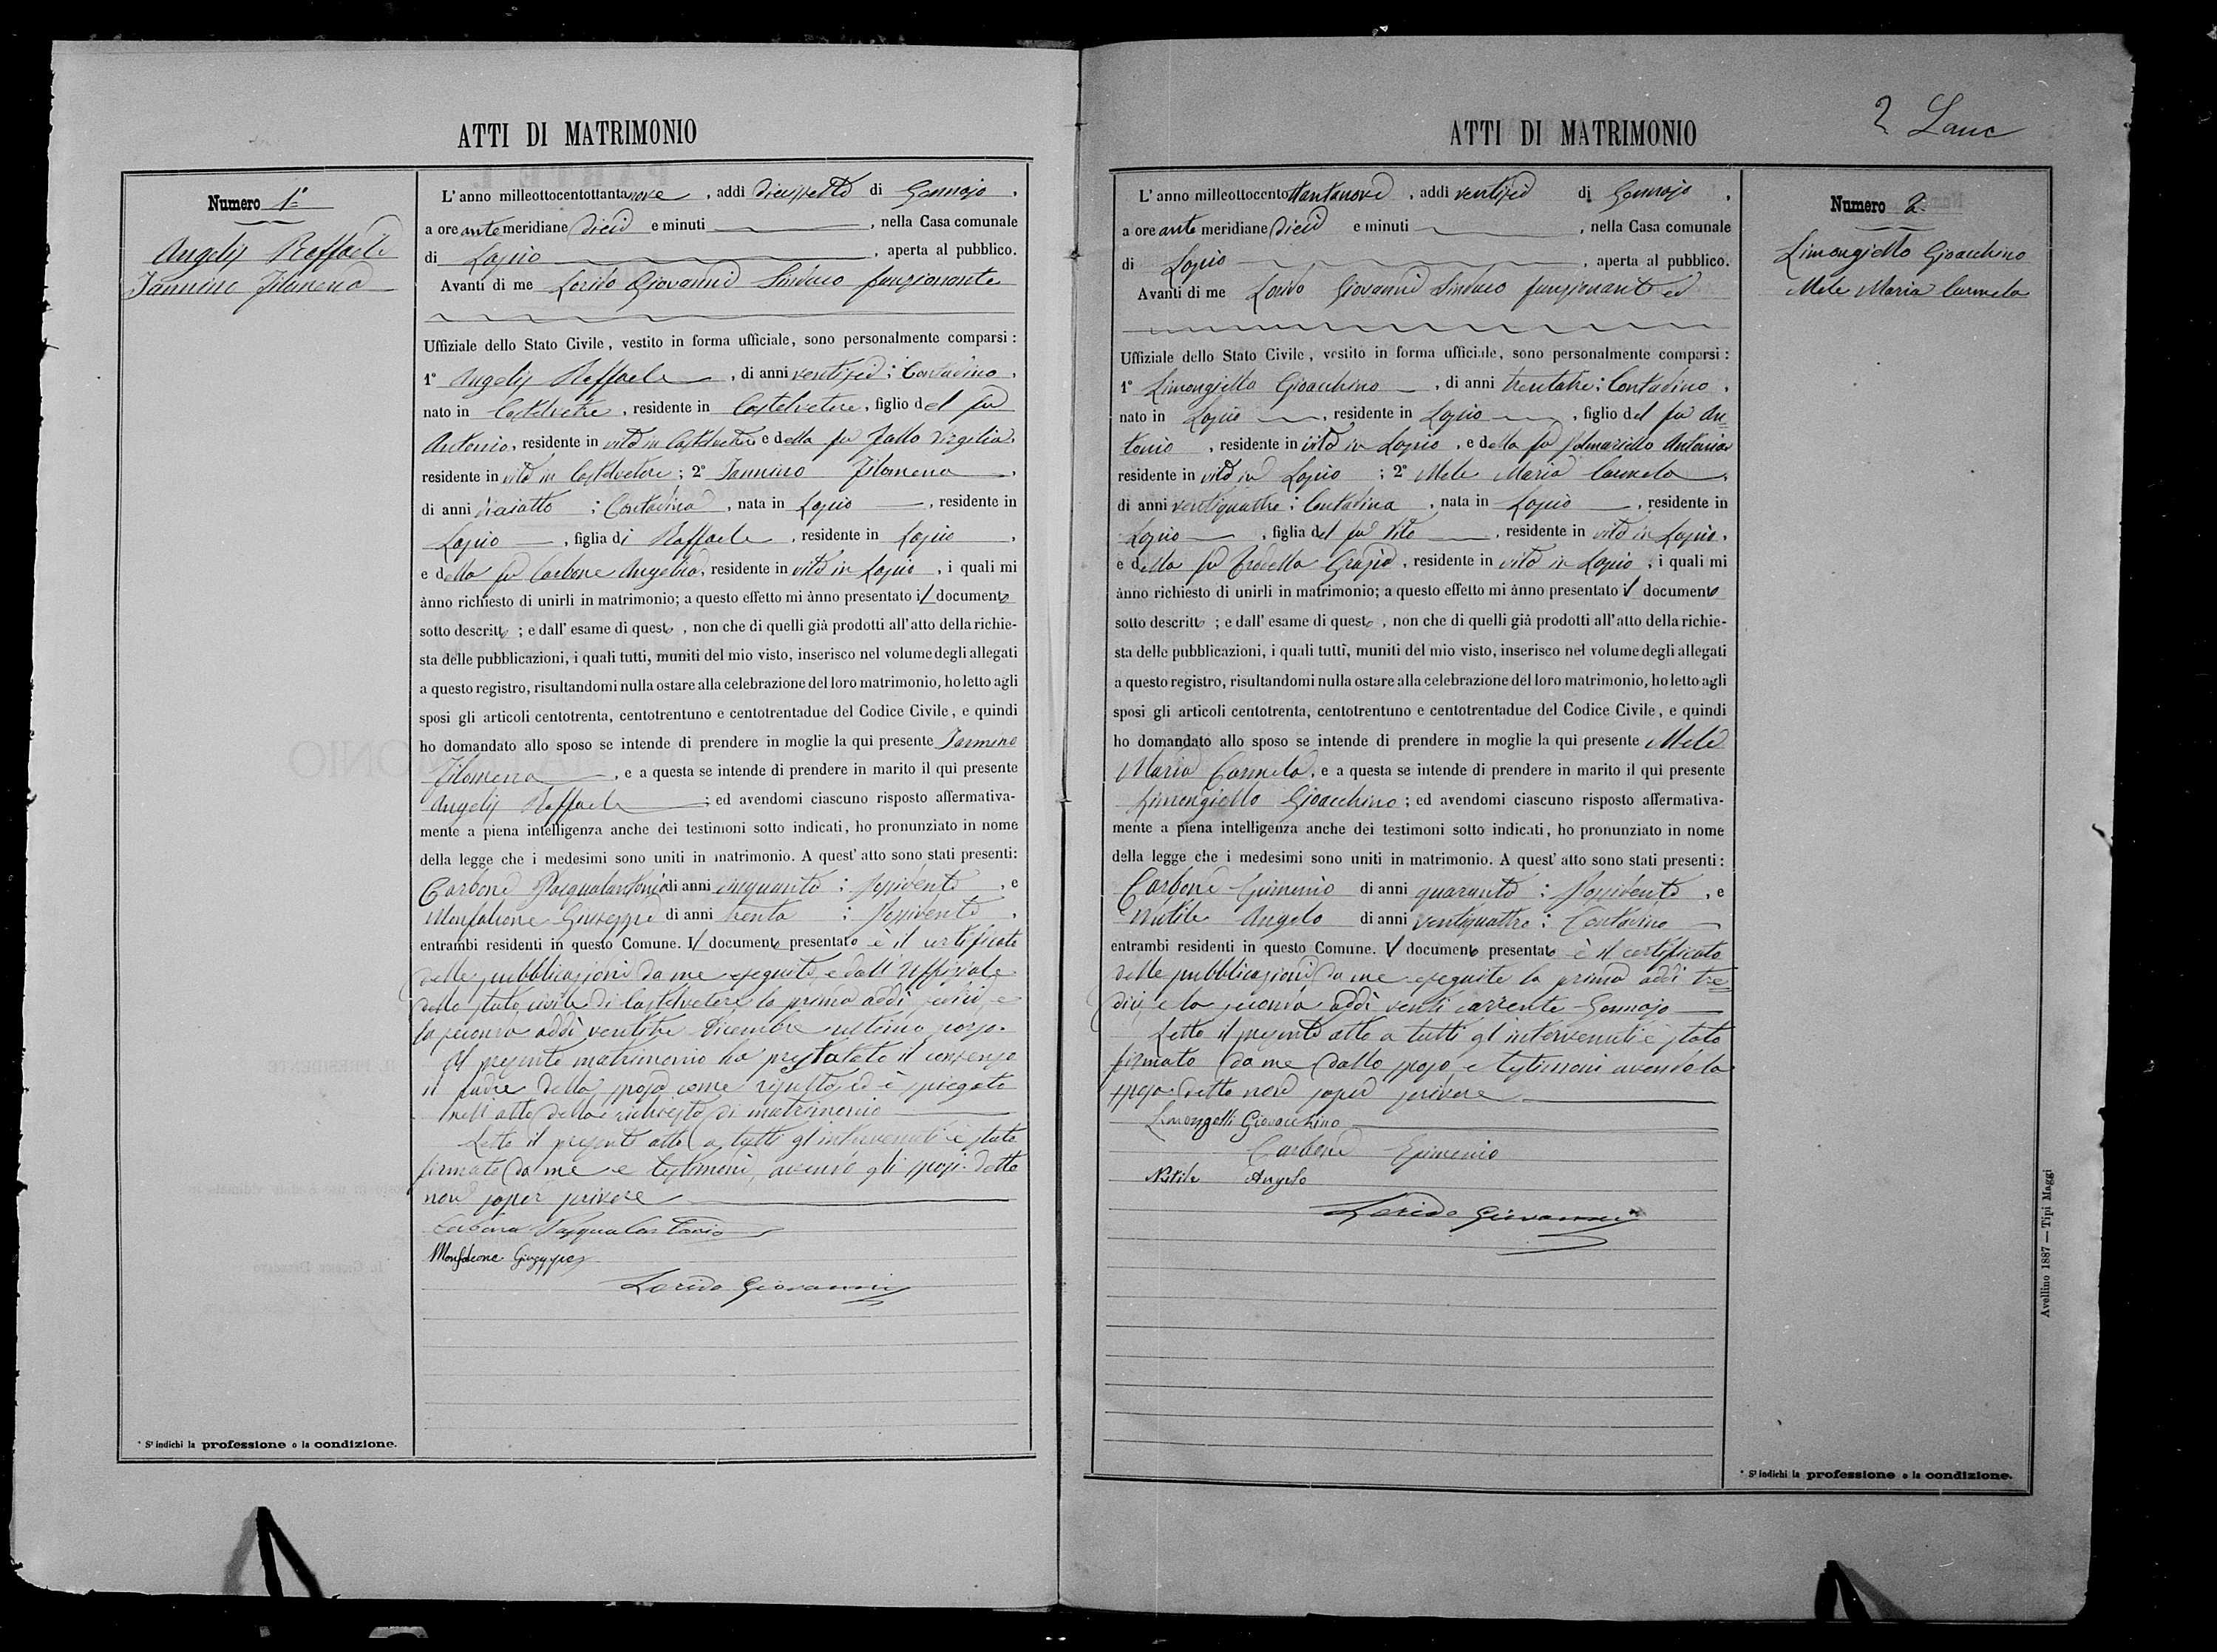 ATTI DI MATRIMONIO
Numero 1º
Angelis Raffaele
Iannino Filomena
L'anno milleottocentottantanove, addì diciassette di Gennajo,
a ore antemeridiane dieci e minuti , nella Casa comunale
di Lapio , aperta al pubblico.
Avanti di me Lorido Giovanni Sindaco funzionante
Uffiziale dello Stato Civile, vestito in forma ufficiale, sono personalmente comparsi:
1º Angelis Raffaele, di anni ventisei; Contadino,
nato in Castelvetere, residente in Castelvetere, figlio del fu
Antonio, residente in vita in Castelvetere e della fu Gallo Virgilia,
residente in vita in Castelvetere; 2º Iannino Filomena,
di anni diciotto; Contadina, nata in Lapio, residente in
Lapio, figlia di Raffaele, residente in Lapio,
e della fu Carbone Angelica, residente in vita in Lapio, i quali mi
ànno richiesto di unirli in matrimonio; a questo effetto mi ànno presentato il documento
sotto descritto; e dall'esame di questo, non che di quelli già prodotti all'atto della richie-
sta delle pubblicazioni, i quali tutti, muniti del mio visto, inserisco nel volume degli allegati
a questo registro, risultandomi nulla ostare alla celebrazione del loro matrimonio, ho letto agli
sposi gli articoli centotrenta, centotrentuno e centotrentadue del Codice Civile, e quindi
ho domandato allo sposo se intende di prendere in moglie la qui presente Iannino
Filomena, e a questa se intende di prendere in marito il qui presente
Angelis Raffaele; ed avendomi ciascuno risposto affermativa-
mente a piena intelligenza anche dei testimoni sotto indicati, ho pronunziato in nome
della legge che i medesimi sono uniti in matrimonio. A quest'atto sono stati presenti:
Carbone Pasqualantonio di anni cinquanta; Possidente, e
Monfalcone Giuseppe di anni trenta; Possidente,
entrambi residenti in questo Comune. Il documento presentato è il certificato
delle pubblicazioni da me eseguite e dall'Uffiziale
dello stato civile di Castelvetere la prima addì sedici e
la seconda addì ventitre Dicembre ultimo scorso.
Al presente matrimonio ha prestato il consenso
il padre della sposa come risulta ed è spiegato
nell'atto della richiesta di matrimonio
Letto il presente atto a tutti gl'intervenuti è stato
firmato da me e testimoni, avendo gli sposi detto
non saper scrivere
Carbone Pasqualantonio
Monfalcone Giuseppe
Lorido Giovanni
* Si indichi la professione o la condizione.
2 Lanc
ATTI DI MATRIMONIO
Numero 2
Limongiello Gioacchino
Mele Maria Carmela
L'anno milleottocentottantanove, addì ventisei di Gennajo,
a ore antemeridiane dieci e minuti , nella Casa comunale
di Lapio , aperta al pubblico.
Avanti di me Lorido Giovanni Sindaco funzionante
Uffiziale dello Stato Civile, vestito in forma ufficiale, sono personalmente comparsi:
1º Limongiello Gioacchino, di anni trentatre; Contadino,
nato in Lapio, residente in Lapio, figlio del fu An=
tonio, residente in vita in Lapio, e della fu Palmariello Antonia
residente in vita in Lapio; 2º Mele Maria Carmela,
di anni ventiquattro; Contadina, nata in Lapio, residente in
Lapio, figlia del fu Vito, residente in vita in Lapio,
e della fu Grazia, residente in vita in Lapio, i quali mi
ànno richiesto di unirli in matrimonio; a questo effetto mi ànno presentato il documento
sotto descritto; e dall'esame di questo, non che di quelli già prodotti all'atto della richie-
sta delle pubblicazioni, i quali tutti, muniti del mio visto, inserisco nel volume degli allegati
a questo registro, risultandomi nulla ostare alla celebrazione del loro matrimonio, ho letto agli
sposi gli articoli centotrenta, centotrentuno e centotrentadue del Codice Civile, e quindi
ho domandato allo sposo se intende di prendere in moglie la qui presente Mele
Maria Carmela, e a questa se intende di prendere in marito il qui presente
Limongiello Gioacchino; ed avendomi ciascuno risposto affermativa-
mente a piena intelligenza anche dei testimoni sotto indicati, ho pronunziato in nome
della legge che i medesimi sono uniti in matrimonio. A quest'atto sono stati presenti:
Carbone Epimenio di anni quaranta; Possidente, e
Nutile Angelo di anni ventiquattro; Contadino
entrambi residenti in questo Comune. Il documento presentato è il certificato
delle pubblicazioni da me eseguite la prima addì tre=
dici e la seconda addì venti corrente Gennajo
Letto il presente atto a tutti gl'intervenuti è stato
firmato da me dallo sposo e testimoni avendo la
sposa detto non saper scrivere
Limongelli Giovacchino
Carbone Epimenio
Nutile Angelo
Lorido Giovanni
* Si indichi la professione o la condizione.
Avellino 1887 — Tipi Maggi